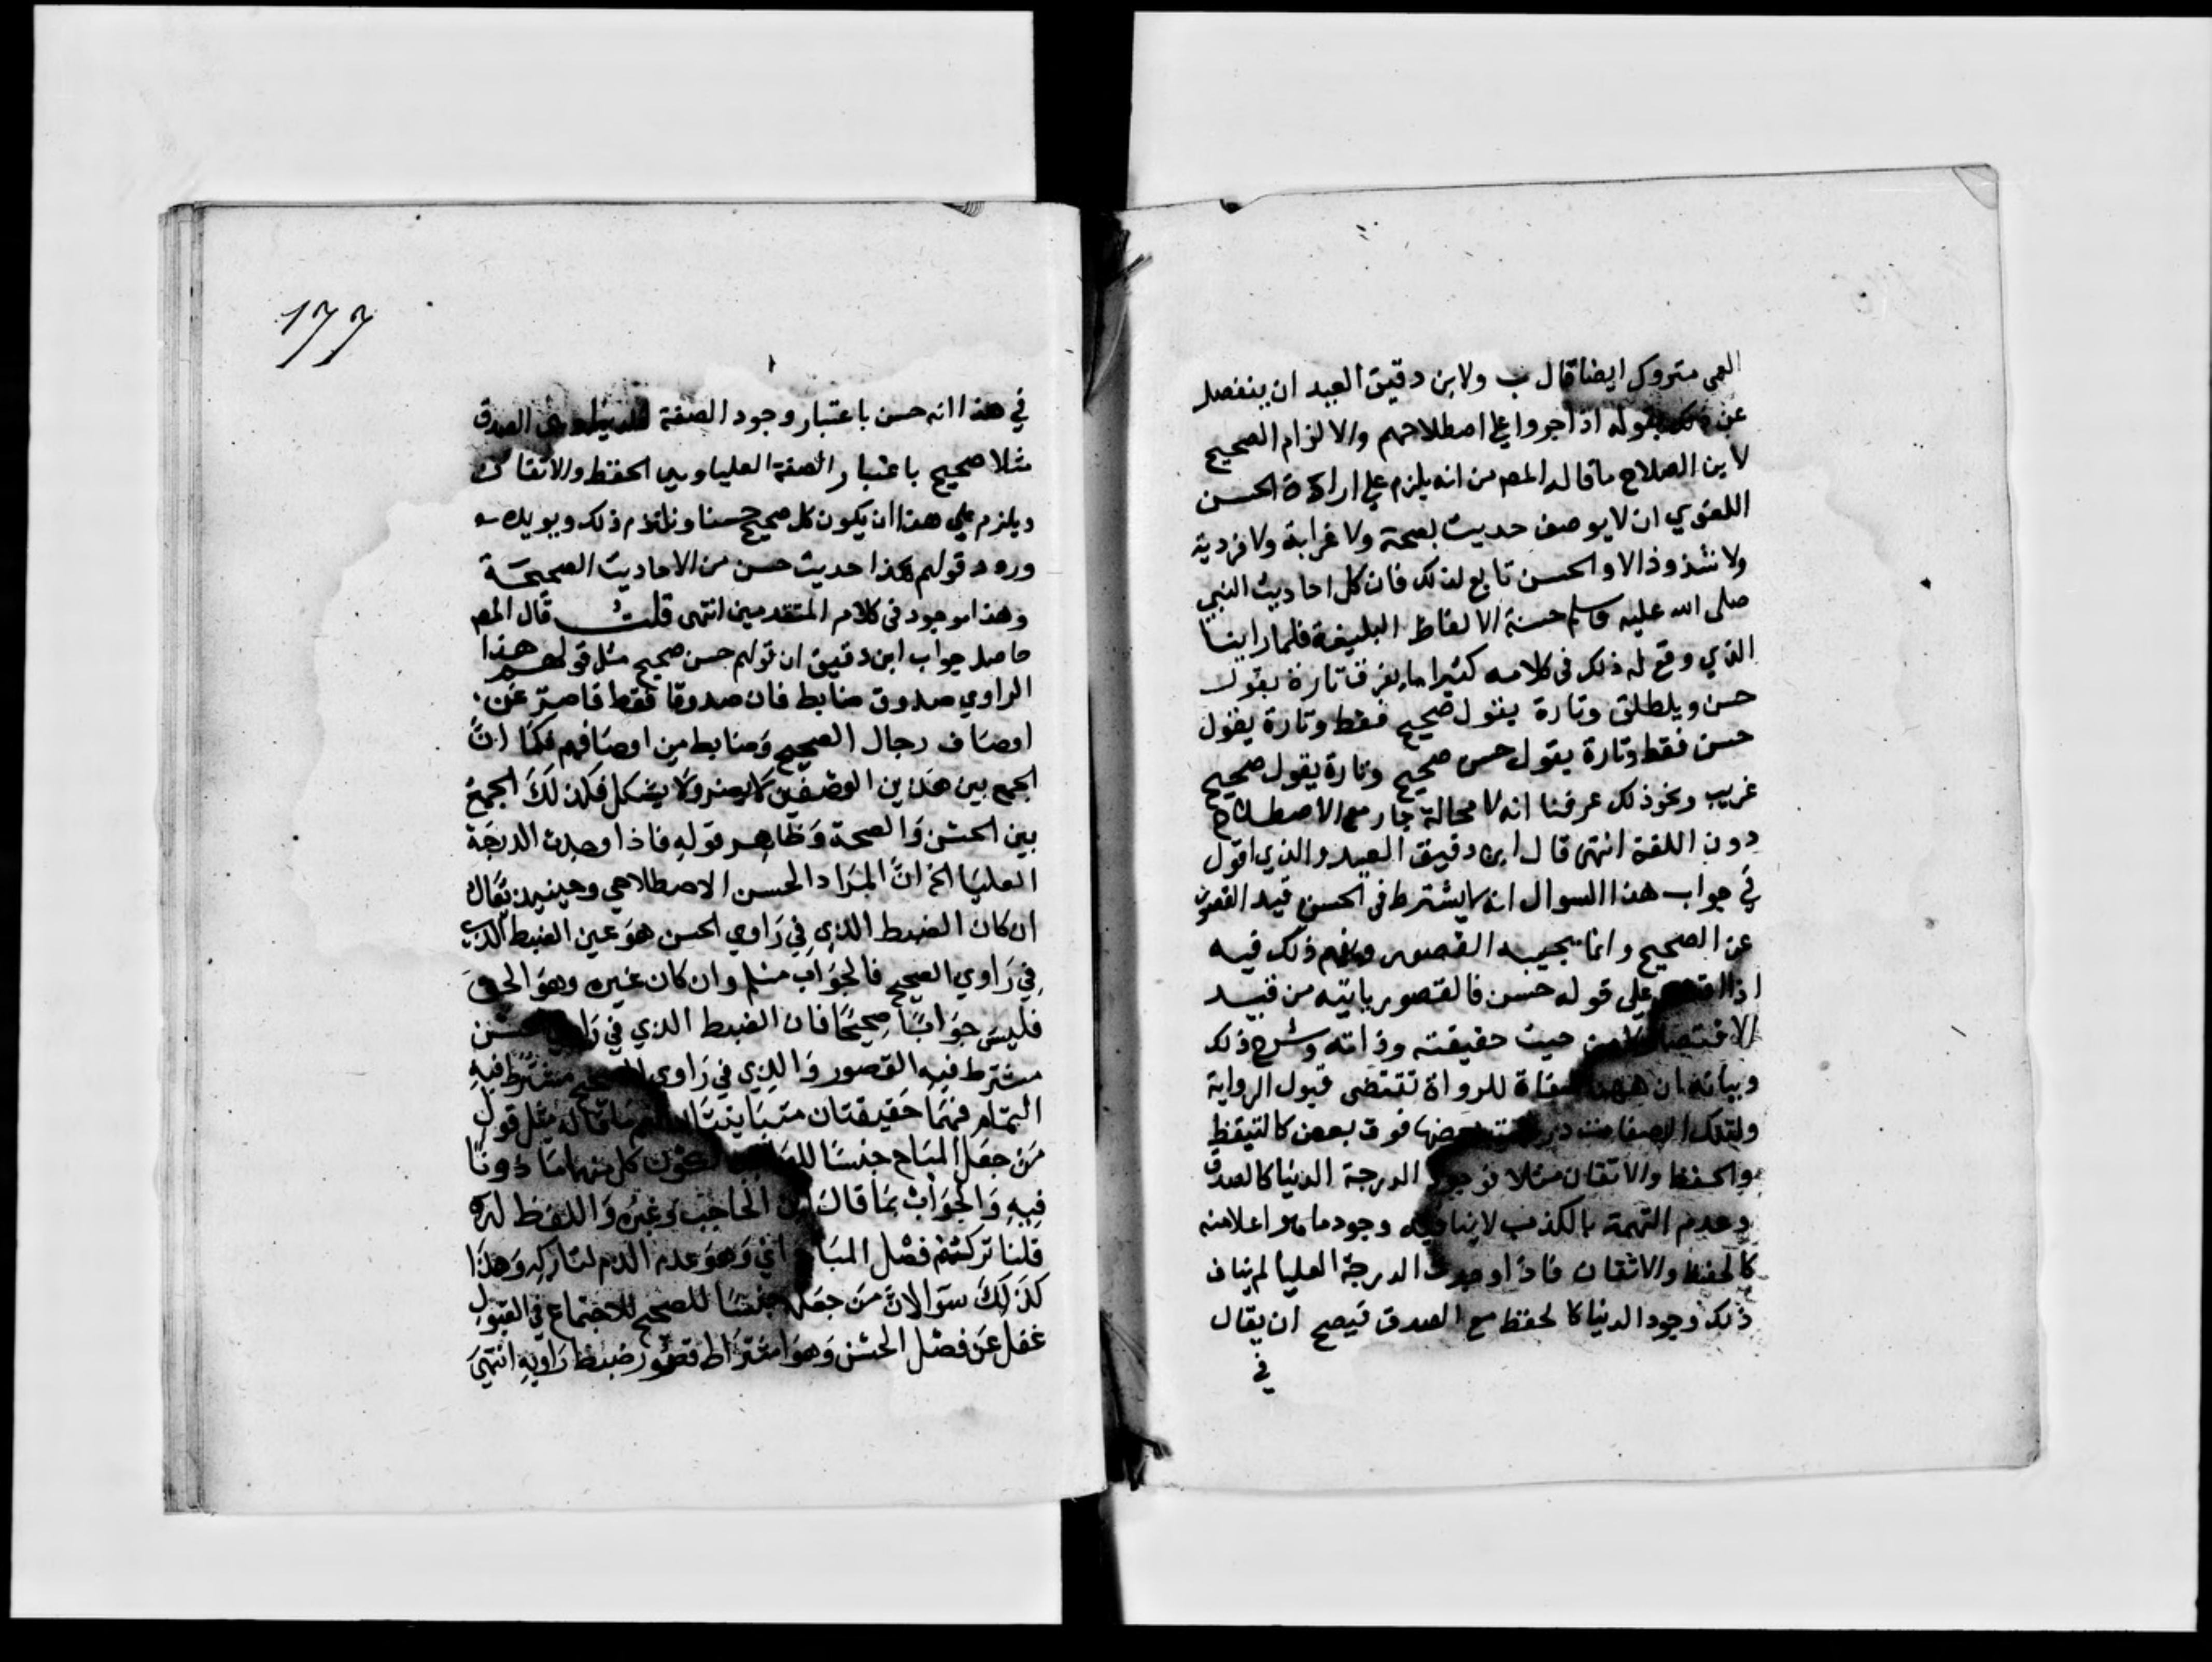 العي متروك ايضا قال ب ولابن دقيق العيد ان ينفصل
عن ذلك بقوله اذا جروا علي اصطلاحهم والالزام الصحيح
لابن الصلاح ما قاله المص من انه يلزم علي ارادة الحسن
اللغوي ان لا يوصف حديث بصحة ولا غرابة ولا فردية
ولا شذوذ الا والحسن تابع لذلك فان كل احاديث النبي
صلى الله عليه وسلم حسنة الالفاظ البليغة فلما راينا
الذي وقع له ذلك في كلامه كثيرا ما يفرق تارة يقول
حسن ويطلق وتارة يقول صحيح فقط وتارة يقول
حسن فقط وتارة يقول حسن صحيح وتارة يقول صحيح
غريب ونحو ذلك عرفنا انه لا محالة جار مع الاصطلاح
دون اللغة انتهى قال ابن دقيق العيد والذي اقول
في جواب هذا السوال انه لا يشترط في الحسن قيد القصور
عن الصحيح وانما يجيه القصور ويفهم ذلك فيه
اذا اقتصر على قوله حسن فالقصور ياتيه من قبيد
الاقتصار لا من حيث حقيقته وذاته وشرح ذلك
وبيانه ان ههنا صفاة للرواة تقتضى قبول الرواية
ولتلك الصفات درجات بعضها فوق بعض كالتيقظ
والحفظ والاتقان مثلا فوجود الدرجة الدنيا كالصدق
وعدم التهمة بالكذب لا ينافيه وجود ما هو اعلا منه
كالحفظ والاتقان فاذا وجدت الدرجة العليا لم يناف
ذلك وجود الدنيا كالحفظ مع الصدق فيصح ان يقال
في
١٦٦
في هذا انه حسن باعتبار وجود الصفة الدنيا وهي الصدق
مثلا صحيح باعتبار الصفة العليا وهي الحفظ والاتقان
ويلزم علي هذا ان يكون كل صحيح حسنا ونلتزم ذلك ويويده
ورود قولهم هذا حديث حسن من الاحاديث الصحيحة
وهذا موجود في كلام المتقدمين انتهى قلت قال المص
حاصل جواب ابن دقيق ان قولهم حسن صحيح مثل قولهم هذا
الراوي صدوق ضابط فان صدوقا فقط قاصر عن
اوصاف رجال الصحيح وضابط من اوصافهم فكما انّ
الجمع بين هذين الوصفين لا يضر ولا يشكل فكذلك الجمع
بين الحسن والصحة وظاهر قوله فاذا وجدت الدرجة
العليا الخ انّ المراد الحسن الاصطلاحي وحينيذ يقال
ان كان الضبط الذي في راوي الحسن هو عين الضبط الذي
في راوي الصحيح فالجواب مسلم وان كان غيره وهو الحق
فليس جوابًا صحيحًا فان الضبط الذي في راوي الحسن
مشترط فيه القصور والذي في راوي الصحيح مشترط فيه
التمام فهما حقيقتان متباينتان ما قاله مثل قول
من جعل المباح جنسًا للواجب لكون كل منهما ماذونًا
فيه والجواب بما قال ابن الحاجب وغيره واللفظ له
قلنا تركتم فصل المباح اني وهو عدم الذم لتاركه وهذا
كذلك سوالانّ من جعله جنسًا للصحيح للاجتماع في القبول
غفل عن فصل الحسن وهو اشتراط قصور ضبط راويه انتهي